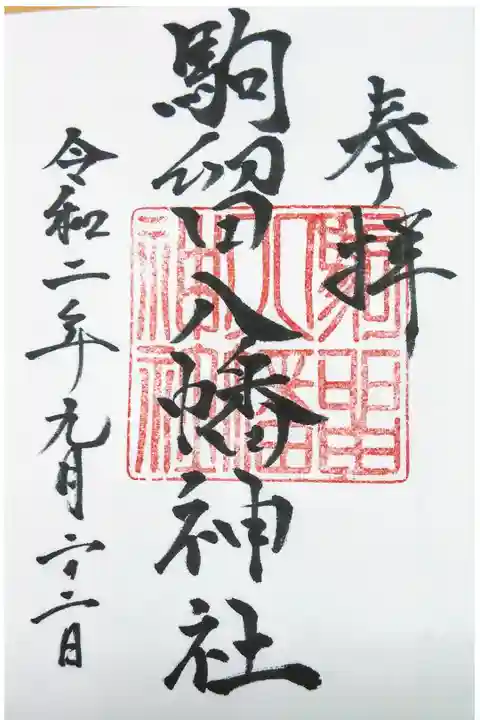 奉拝
駒留八幡神社
令和二年元月二十二日
駒留
八幡
神社